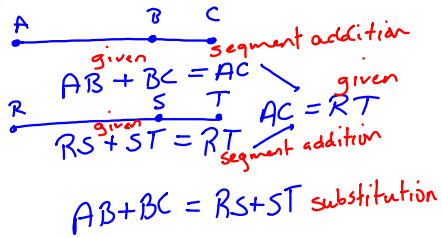 A B C
given segment addition
AB + BC = AC
given
R S T
given AC = RT
RS + ST = RT
segment addition
AB+BC = RS+ST substitution